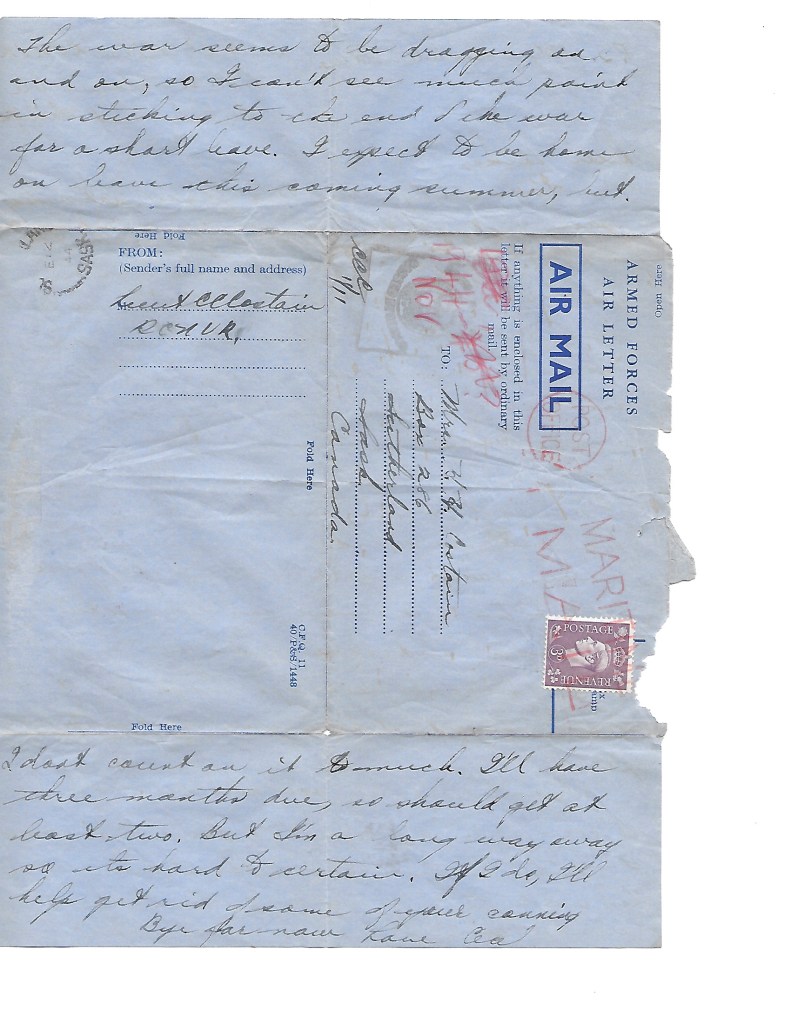 The war seems to be dragging on
and on, so I can't see much point
in sticking to the end of the war
for a short leave. I expect to be home
on leave this coming summer, but.
Fold Here
SASK
FROM:
(Sender's full name and address)
Lieut C C Costain
RCNVR,
Fold Here
Open Here
ARMED FORCES
AIR LETTER
AIR MAIL
If anything is enclosed in this
letter it will be sent by ordinary
mail.
NOV
POST
OFFICE
MARIT
MAIL
TO:
Mrs. H H Costain
Box 286
Sutherland
Sask.
Canada.
CCC
1/11
POSTAGE
REVENUE
3D
C.F.Q. 11
40 P&S/1448
Fold Here
I dont count on it to much. I'll have
three months due, so should get at
least two. But I'm a long way away
so its hard to certain. If I do, I'll
help get rid of some of your canning
Bye for now Love Cec